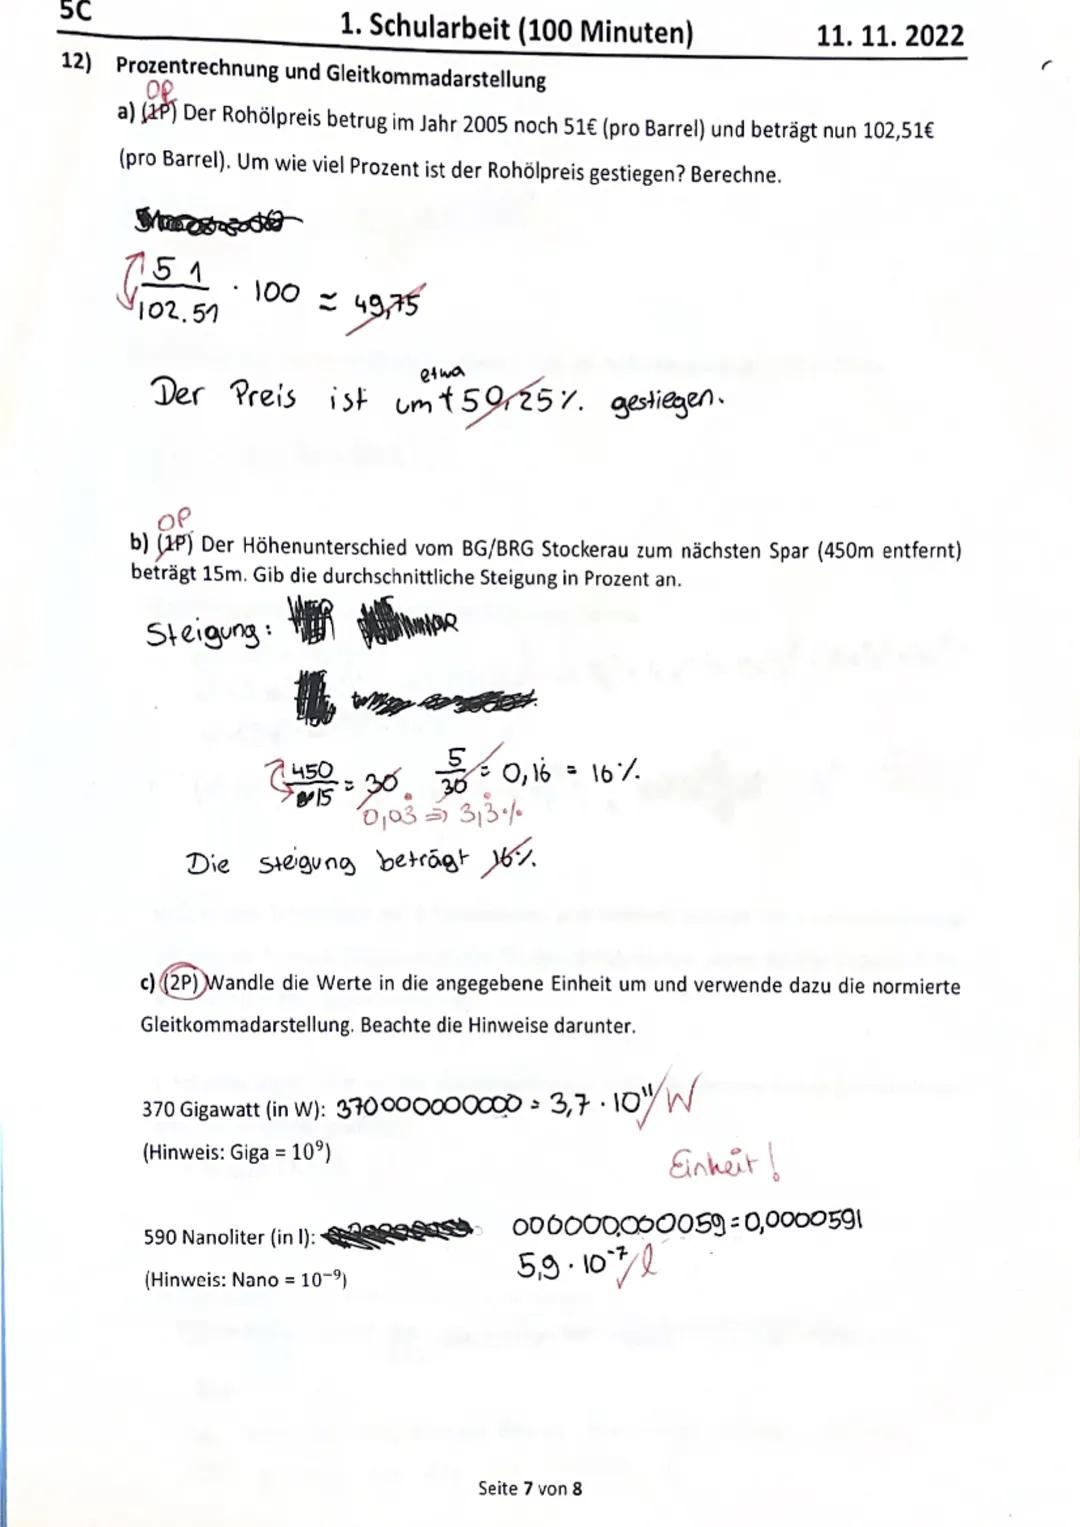 5C
1. Schularbeit (100 Minuten)
11. 11. 2022
12) Prozentrechnung und Gleitkommadarstellung
0P
a) (1P) Der Rohölpreis betrug im Jahr 2005 noch 51€ (pro Barrel) und beträgt nun 102,51€
(pro Barrel). Um wie viel Prozent ist der Rohölpreis gestiegen? Berechne.
51
102.51 · 100 ≈ 49,75
etwa
Der Preis ist um 50,25%. gestiegen.
0P
b) (1P) Der Höhenunterschied vom BG/BRG Stockerau zum nächsten Spar (450m entfernt)
beträgt 15m. Gib die durchschnittliche Steigung in Prozent an.
Steigung:
450/15 = 30 5/30 = 0,16 = 16%.
0,03 => 3,3%
Die Steigung beträgt 16%.
c) (2P) Wandle die Werte in die angegebene Einheit um und verwende dazu die normierte
Gleitkommadarstellung. Beachte die Hinweise darunter.
370 Gigawatt (in W): 370000000000 = 3,7 · 10¹¹ W
(Hinweis: Giga = 10⁹)
Einheit!
590 Nanoliter (in l): 000000,000059=0,0000591
5,9 · 10⁻⁷ l
(Hinweis: Nano = 10⁻⁹)
Seite 7 von 8